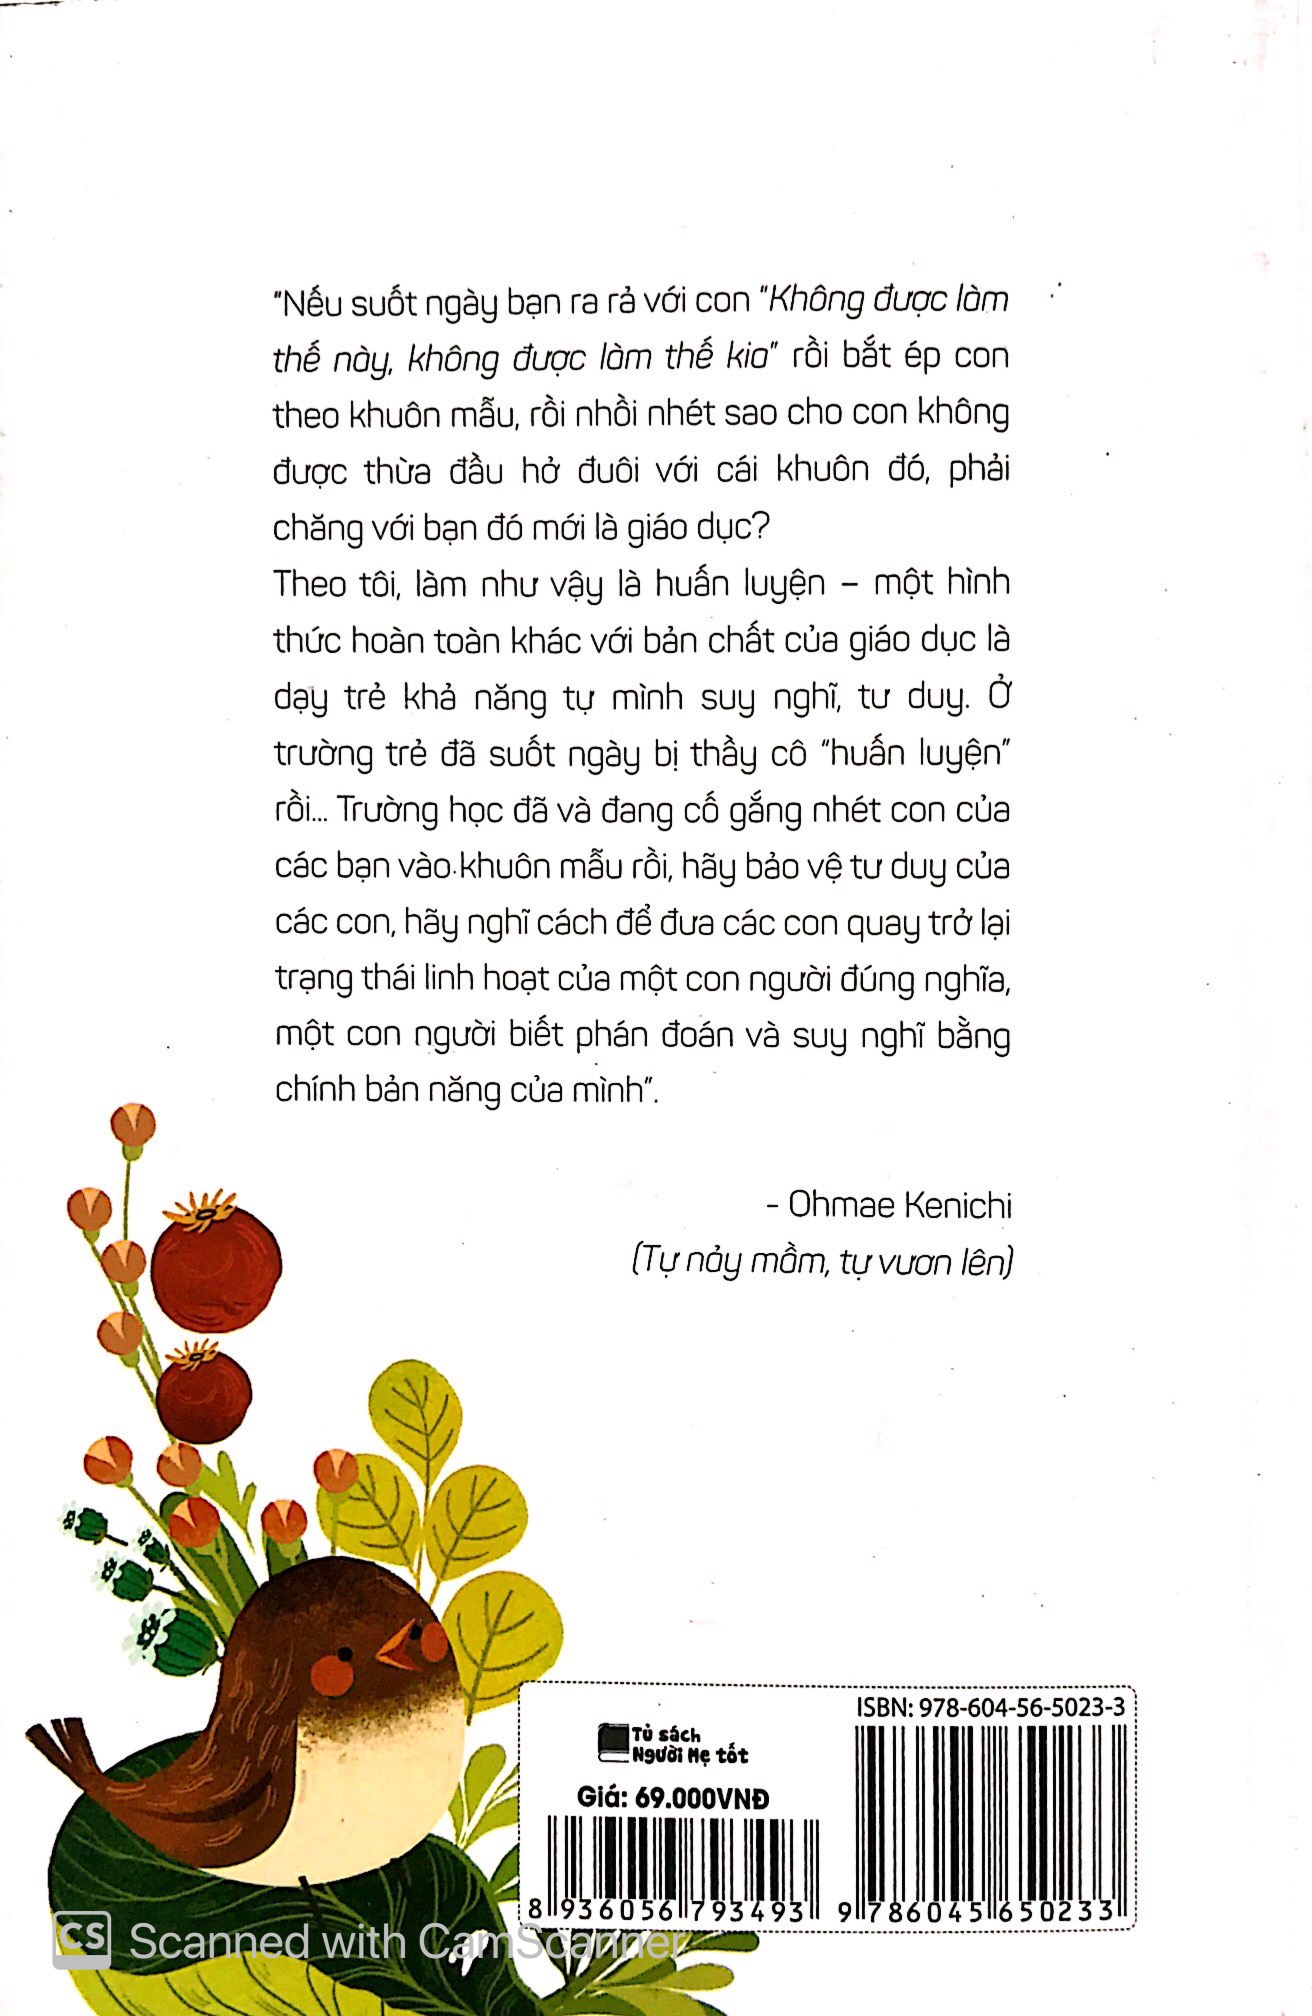 "Nếu suốt ngày bạn ra rả với con "Không được làm
thế này, không được làm thế kia" rồi bắt ép con
theo khuôn mẫu, rồi nhồi nhét sao cho con không
được thừa đầu hở đuôi với cái khuôn đó, phải
chăng với bạn đó mới là giáo dục?
Theo tôi, làm như vậy là huấn luyện – một hình
thức hoàn toàn khác với bản chất của giáo dục là
dạy trẻ khả năng tự mình suy nghĩ, tư duy. Ở
trường trẻ đã suốt ngày bị thầy cô "huấn luyện"
rồi... Trường học đã và đang cố gắng nhét con của
các bạn vào khuôn mẫu rồi, hãy bảo vệ tư duy của
các con, hãy nghĩ cách để đưa các con quay trở lại
trạng thái linh hoạt của một con người đúng nghĩa,
một con người biết phán đoán và suy nghĩ bằng
chính bản năng của mình".
- Ohmae Kenichi
(Tự nảy mầm, tự vươn lên)
ISBN: 978-604-56-5023-3
Tủ sách
Người Mẹ tốt
Giá: 69.000VNĐ
8 936056 793493
9 786045 650233
CS Scanned with CamScanner